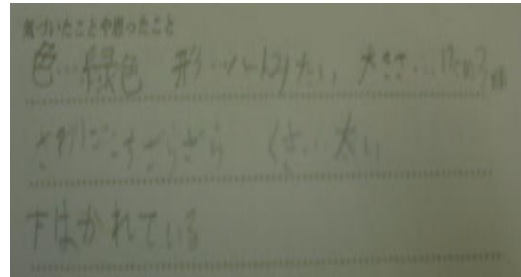 気づいたことや思ったこと
色…緑色 形…ハートみたい 大きさ…
さわりごこち ざらざら くき…太い
下はかれている